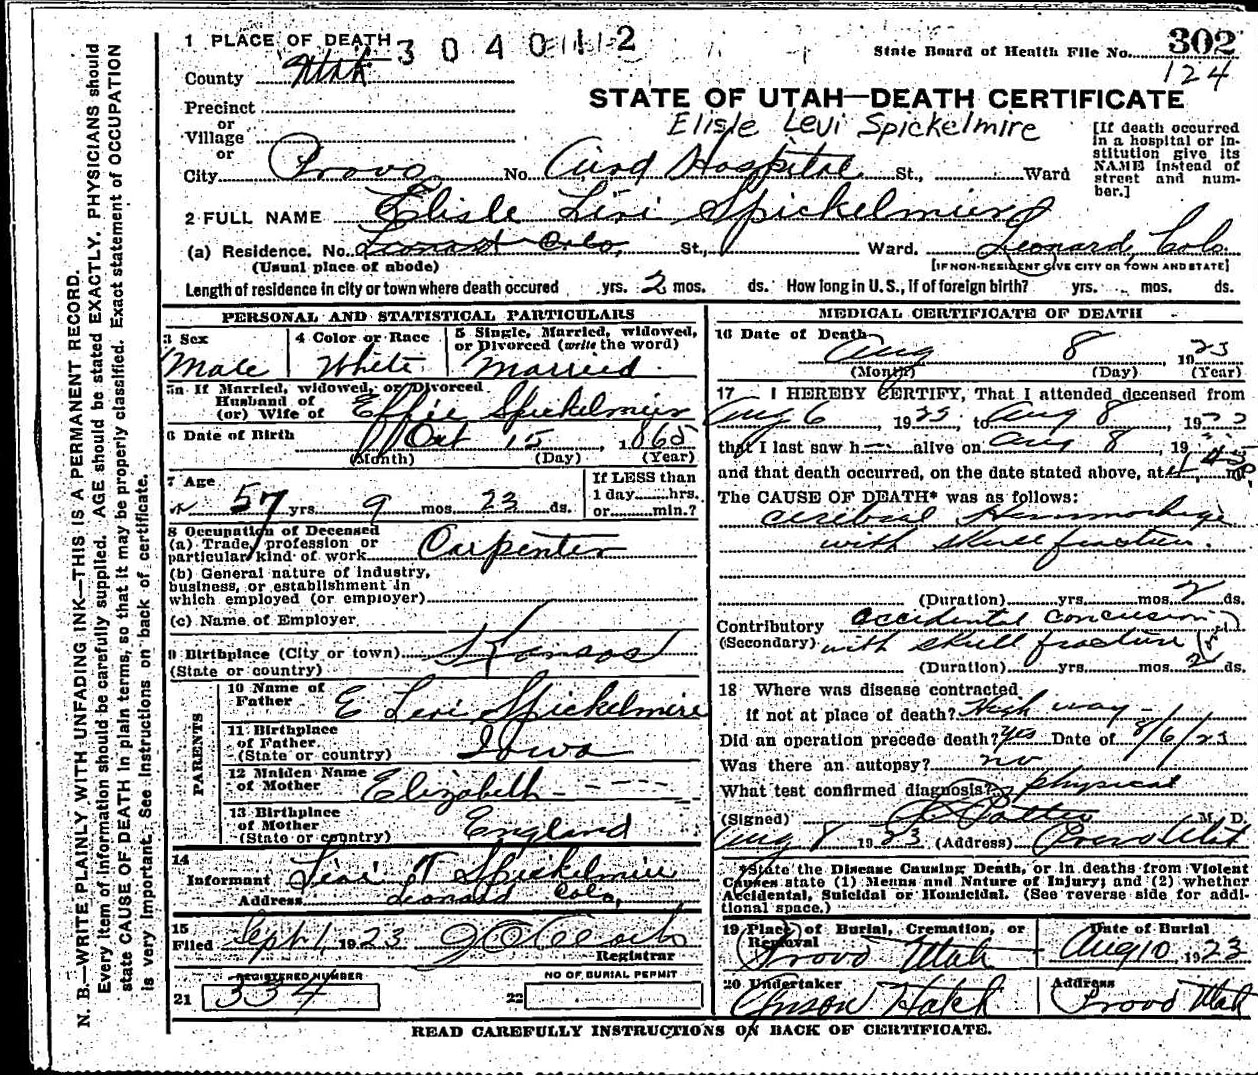 1 PLACE OF DEATH 3 0 4 0 1 1 2
State Board of Health File No. 302
124
County Utah
Precinct
or
Village
or
City Provo No. Hospital St., Ward
STATE OF UTAH—DEATH CERTIFICATE
Elisle Levi Spickelmire
[If death occurred in a hospital or institution give its NAME instead of street and number.]
2 FULL NAME Elisle Levi Spickelmire
(a) Residence. No. Leonard Colo, St., Ward. Leonard, Colo.
(Usual place of abode) [IF NON-RESIDENT GIVE CITY OR TOWN AND STATE]
Length of residence in city or town where death occured yrs. 2 mos. ds. How long in U. S., if of foreign birth? yrs. mos. ds.
PERSONAL AND STATISTICAL PARTICULARS
3 Sex
Male
4 Color or Race
White
5 Single, Married, widowed, or Divorced (write the word)
Married
5a If Married, widowed, or Divorced
Husband of
(or) Wife of Effie Spickelmier
6 Date of Birth Oct 15, 1865
(Month) (Day) (Year)
7 Age
57 yrs. 9 mos. 23 ds.
If LESS than
1 day......hrs.
or......min.?
8 Occupation of Deceased
(a) Trade, profession or
particular kind of work Carpenter
(b) General nature of industry,
business, or establishment in
which employed (or employer)
(c) Name of Employer
9 Birthplace (City or town) Kansas
(State or country)
PARENTS
10 Name of
Father E Levi Spickelmire
11 Birthplace
of Father
(State or country) Iowa
12 Maiden Name
of Mother Elizabeth - - - -
13 Birthplace
of Mother
(State or country) England
14
Informant Levi T Spickelmire
Address Leonard Colo,
15
Filed Sept 1, 1923
Registrar
REGISTERED NUMBER
21 334
NO OF BURIAL PERMIT
22
MEDICAL CERTIFICATE OF DEATH
16 Date of Death
Aug 8, 1923
(Month) (Day) (Year)
17 I HEREBY CERTIFY, That I attended deceased from
Aug 6, 1923, to Aug 8, 1923
that I last saw h— alive on Aug 8, 19
and that death occurred, on the date stated above, at m.
The CAUSE OF DEATH* was as follows:
cerebral Hemmorhage
with skull fracture.
(Duration) yrs. mos. 2 ds.
Contributory accidental concussion
(Secondary) with skull fracture
(Duration) yrs. mos. 2 ds.
18 Where was disease contracted
if not at place of death? High way -
Did an operation precede death? yes Date of 8/6/23
Was there an autopsy? no
What test confirmed diagnosis? physical
(Signed) M. D.
Aug 8 1923 (Address) Provo Utah
*State the Disease Causing Death, or in deaths from Violent
Causes state (1) Means and Nature of Injury; and (2) whether
Accidental, Suicidal or Homicidal. (See reverse side for addi-
tional space.)
19 Place of Burial, Cremation, or
Removal
Provo Utah
Date of Burial
Aug 10, 1923
20 Undertaker
Hatch
Address
Provo Utah
READ CAREFULLY INSTRUCTIONS ON BACK OF CERTIFICATE.
N. B.—WRITE PLAINLY WITH UNFADING INK—THIS IS A PERMANENT RECORD.
Every item of information should be carefully supplied. AGE should be stated EXACTLY. PHYSICIANS should
state CAUSE OF DEATH in plain terms, so that it may be properly classified. Exact statement of OCCUPATION
is very important. See Instructions on back of certificate.